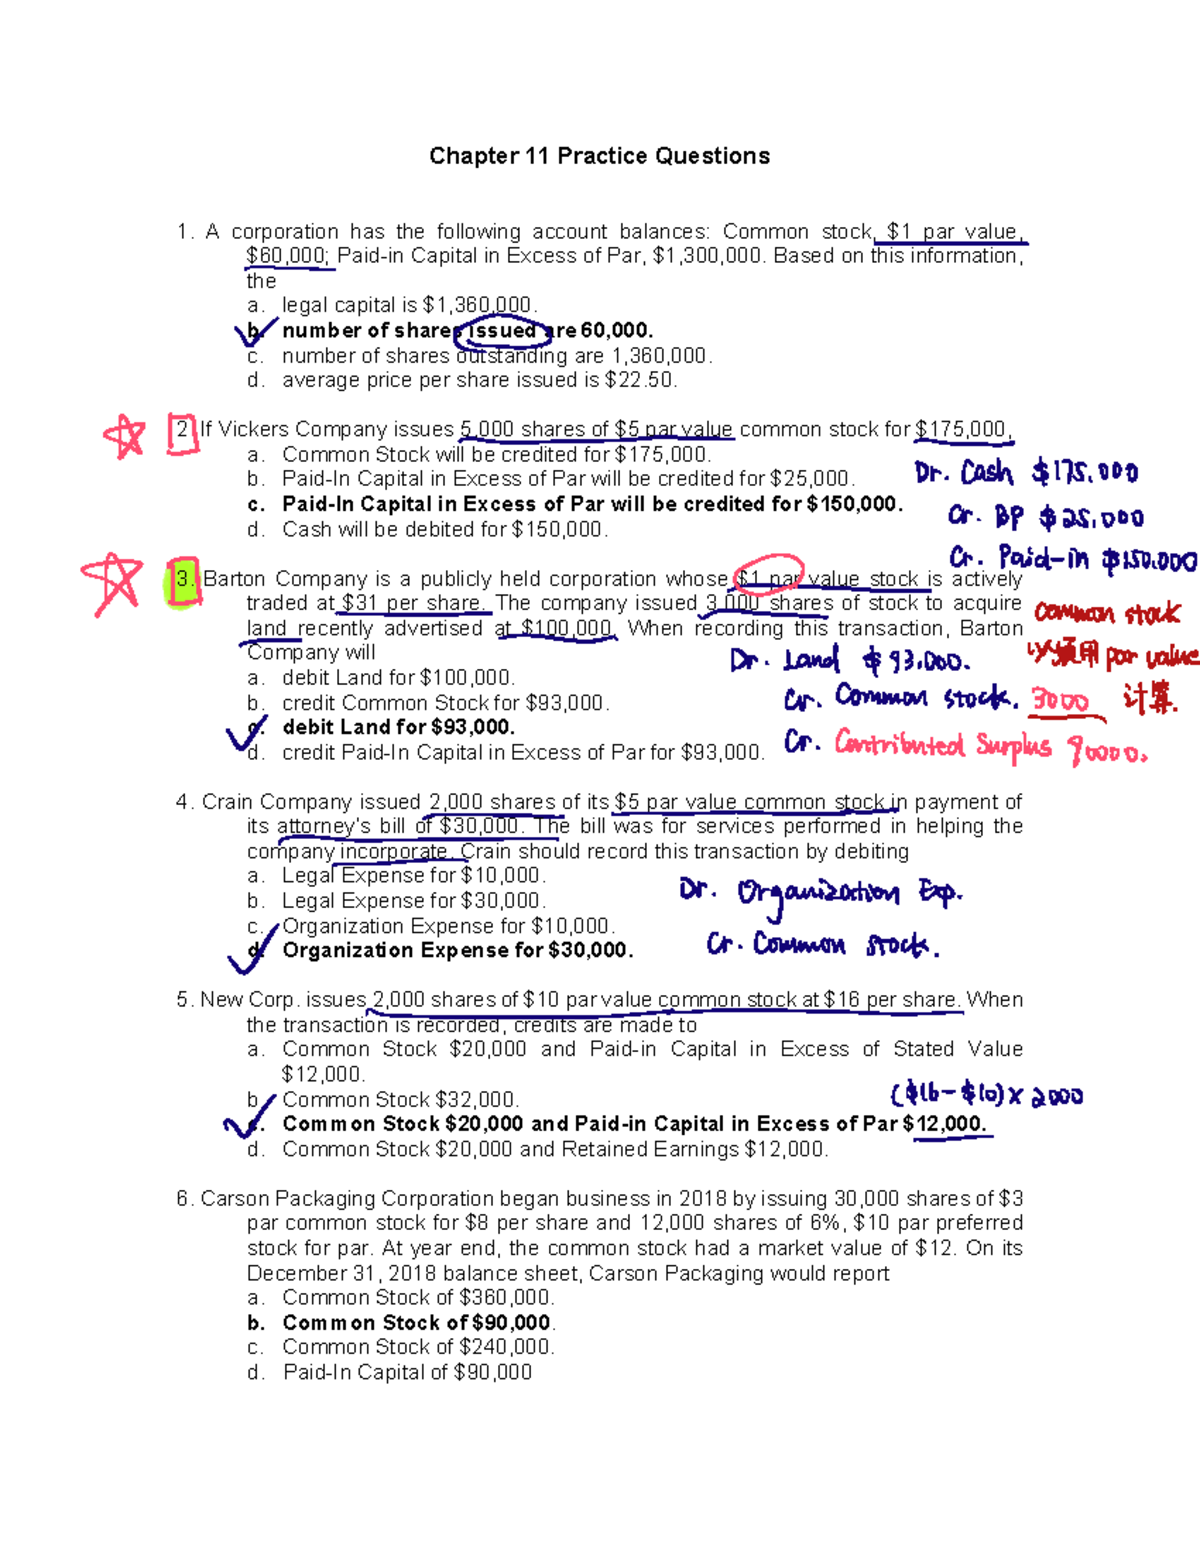 Chapter 11 Practice Questions
1. A corporation has the following account balances: Common stock, $1 par value,
$60,000; Paid-in Capital in Excess of Par, $1,300,000. Based on this information,
the
a. legal capital is $1,360,000.
b. number of shares issued are 60,000.
c. number of shares outstanding are 1,360,000.
d. average price per share issued is $22.50.
2. If Vickers Company issues 5,000 shares of $5 par value common stock for $175,000,
a. Common Stock will be credited for $175,000.
b. Paid-In Capital in Excess of Par will be credited for $25,000.
Dr. Cash $175.000
c. Paid-In Capital in Excess of Par will be credited for $150,000.
Cr. BP $25.000
d. Cash will be debited for $150,000.
Cr. Paid-in $150.000
3. Barton Company is a publicly held corporation whose $1 par value stock is actively
traded at $31 per share. The company issued 3,000 shares of stock to acquire
common stock
land recently advertised at $100,000. When recording this transaction, Barton
Company will
以须用 par value
Dr. Land $93.000.
a. debit Land for $100,000.
b. credit Common Stock for $93,000.
Cr. Common stock. 3000 计算.
c. debit Land for $93,000.
d. credit Paid-In Capital in Excess of Par for $93,000.
Cr. Contributed Surplus 90000.
4. Crain Company issued 2,000 shares of its $5 par value common stock in payment of
its attorney's bill of $30,000. The bill was for services performed in helping the
company incorporate. Crain should record this transaction by debiting
a. Legal Expense for $10,000.
b. Legal Expense for $30,000.
Dr. Organization Exp.
c. Organization Expense for $10,000.
d. Organization Expense for $30,000.
Cr. Common stock.
5. New Corp. issues 2,000 shares of $10 par value common stock at $16 per share. When
the transaction is recorded, credits are made to
a. Common Stock $20,000 and Paid-in Capital in Excess of Stated Value
$12,000.
b. Common Stock $32,000.
($16-$10)x 2000
c. Common Stock $20,000 and Paid-in Capital in Excess of Par $12,000.
d. Common Stock $20,000 and Retained Earnings $12,000.
6. Carson Packaging Corporation began business in 2018 by issuing 30,000 shares of $3
par common stock for $8 per share and 12,000 shares of 6%, $10 par preferred
stock for par. At year end, the common stock had a market value of $12. On its
December 31, 2018 balance sheet, Carson Packaging would report
a. Common Stock of $360,000.
b. Common Stock of $90,000.
c. Common Stock of $240,000.
d. Paid-In Capital of $90,000